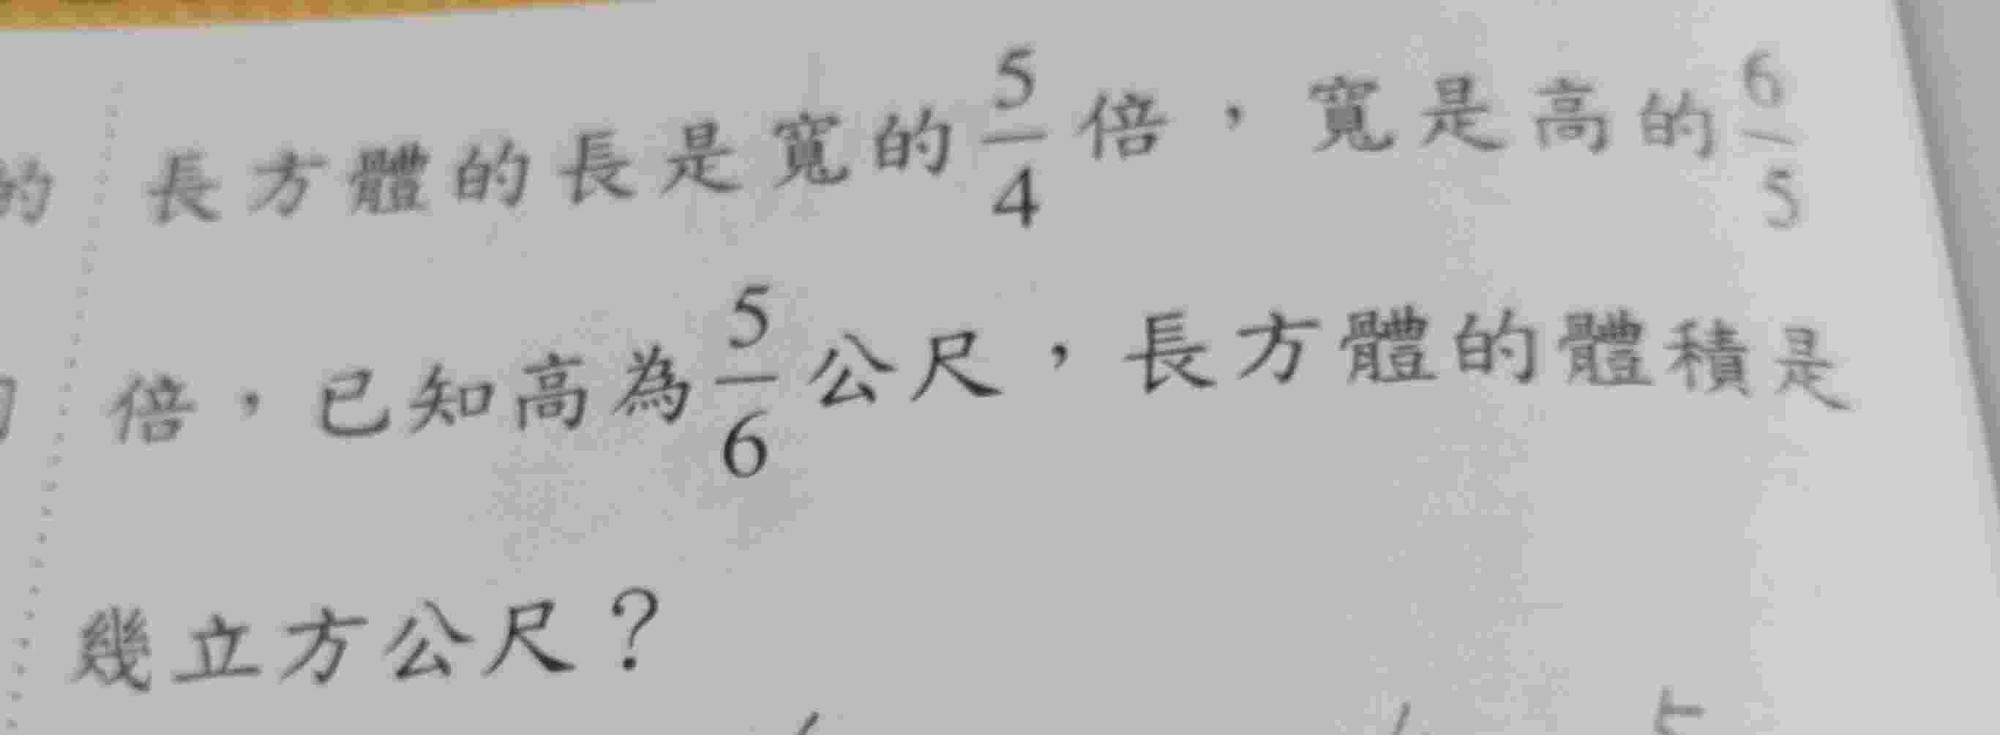 的 長方體的長是寬的5/4倍，寬是高的6/5
倍，已知高為5/6公尺，長方體的體積是
幾立方公尺？